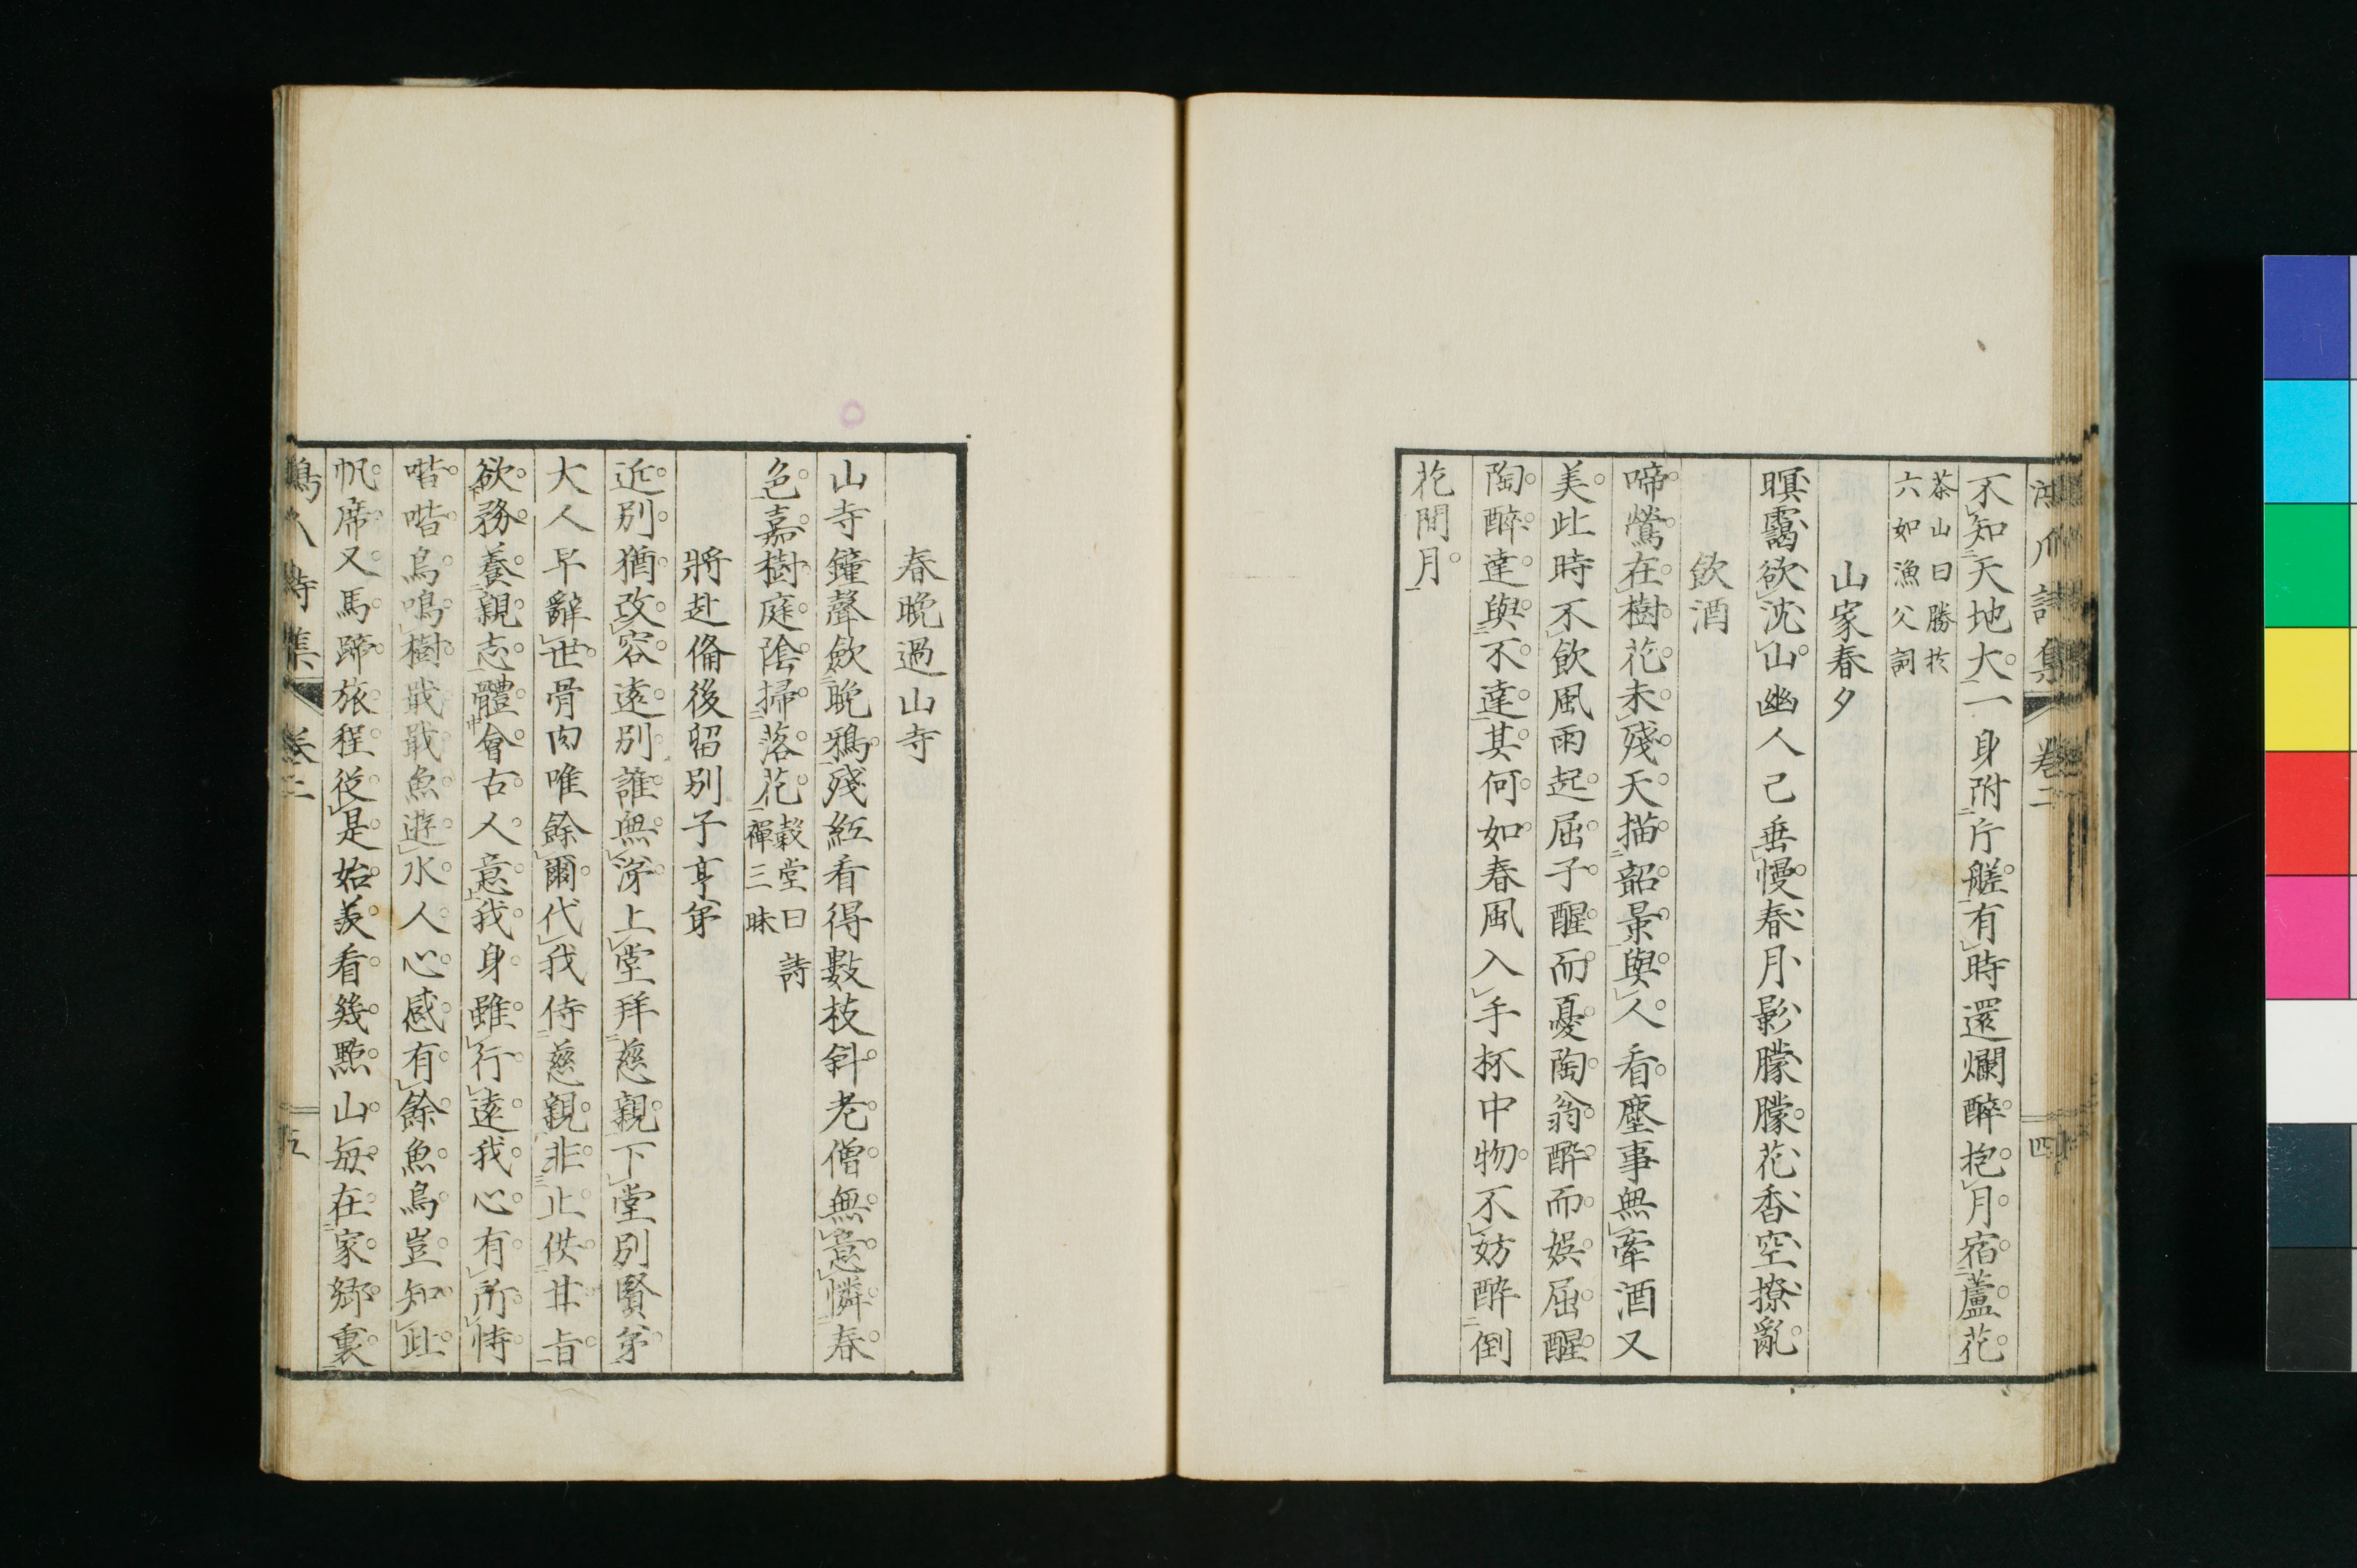 不知天地大一身附片艖有時還爛醉抱月宿蘆花
茶山曰勝於
六如漁父詞
山家春夕
暝靄欲沈山幽人已垂幔春月影朦朦花香空撩亂
飲酒
啼鶯在樹花未殘天描韶景與人看塵事無牽酒又
美此時不飲風雨起屈子醒而憂陶翁醉而娯屈醒
陶醉達與不達其何如春風入手杯中物不妨醉倒
花間月
春晚過山寺
山寺鐘聲斂晚鴉殘紅看得數枝斜老僧無意憐春
色嘉樹庭陰掃落花
穀堂曰詩
禪三昧
將赴備後留別子亨弟
近別猶改容遠別誰無涕上堂拜慈親下堂別賢弟
大人早辭世骨肉唯餘爾代我侍慈親非止供甘旨
欲務養親志體會古人意我身雖行遠我心有所恃
喈喈鳥鳴樹戢戢魚遊水人心感有餘魚鳥豈知此
帆席又馬蹄旅程從是始羨看幾點山每在家鄉裏
卷二
四
卷二
五